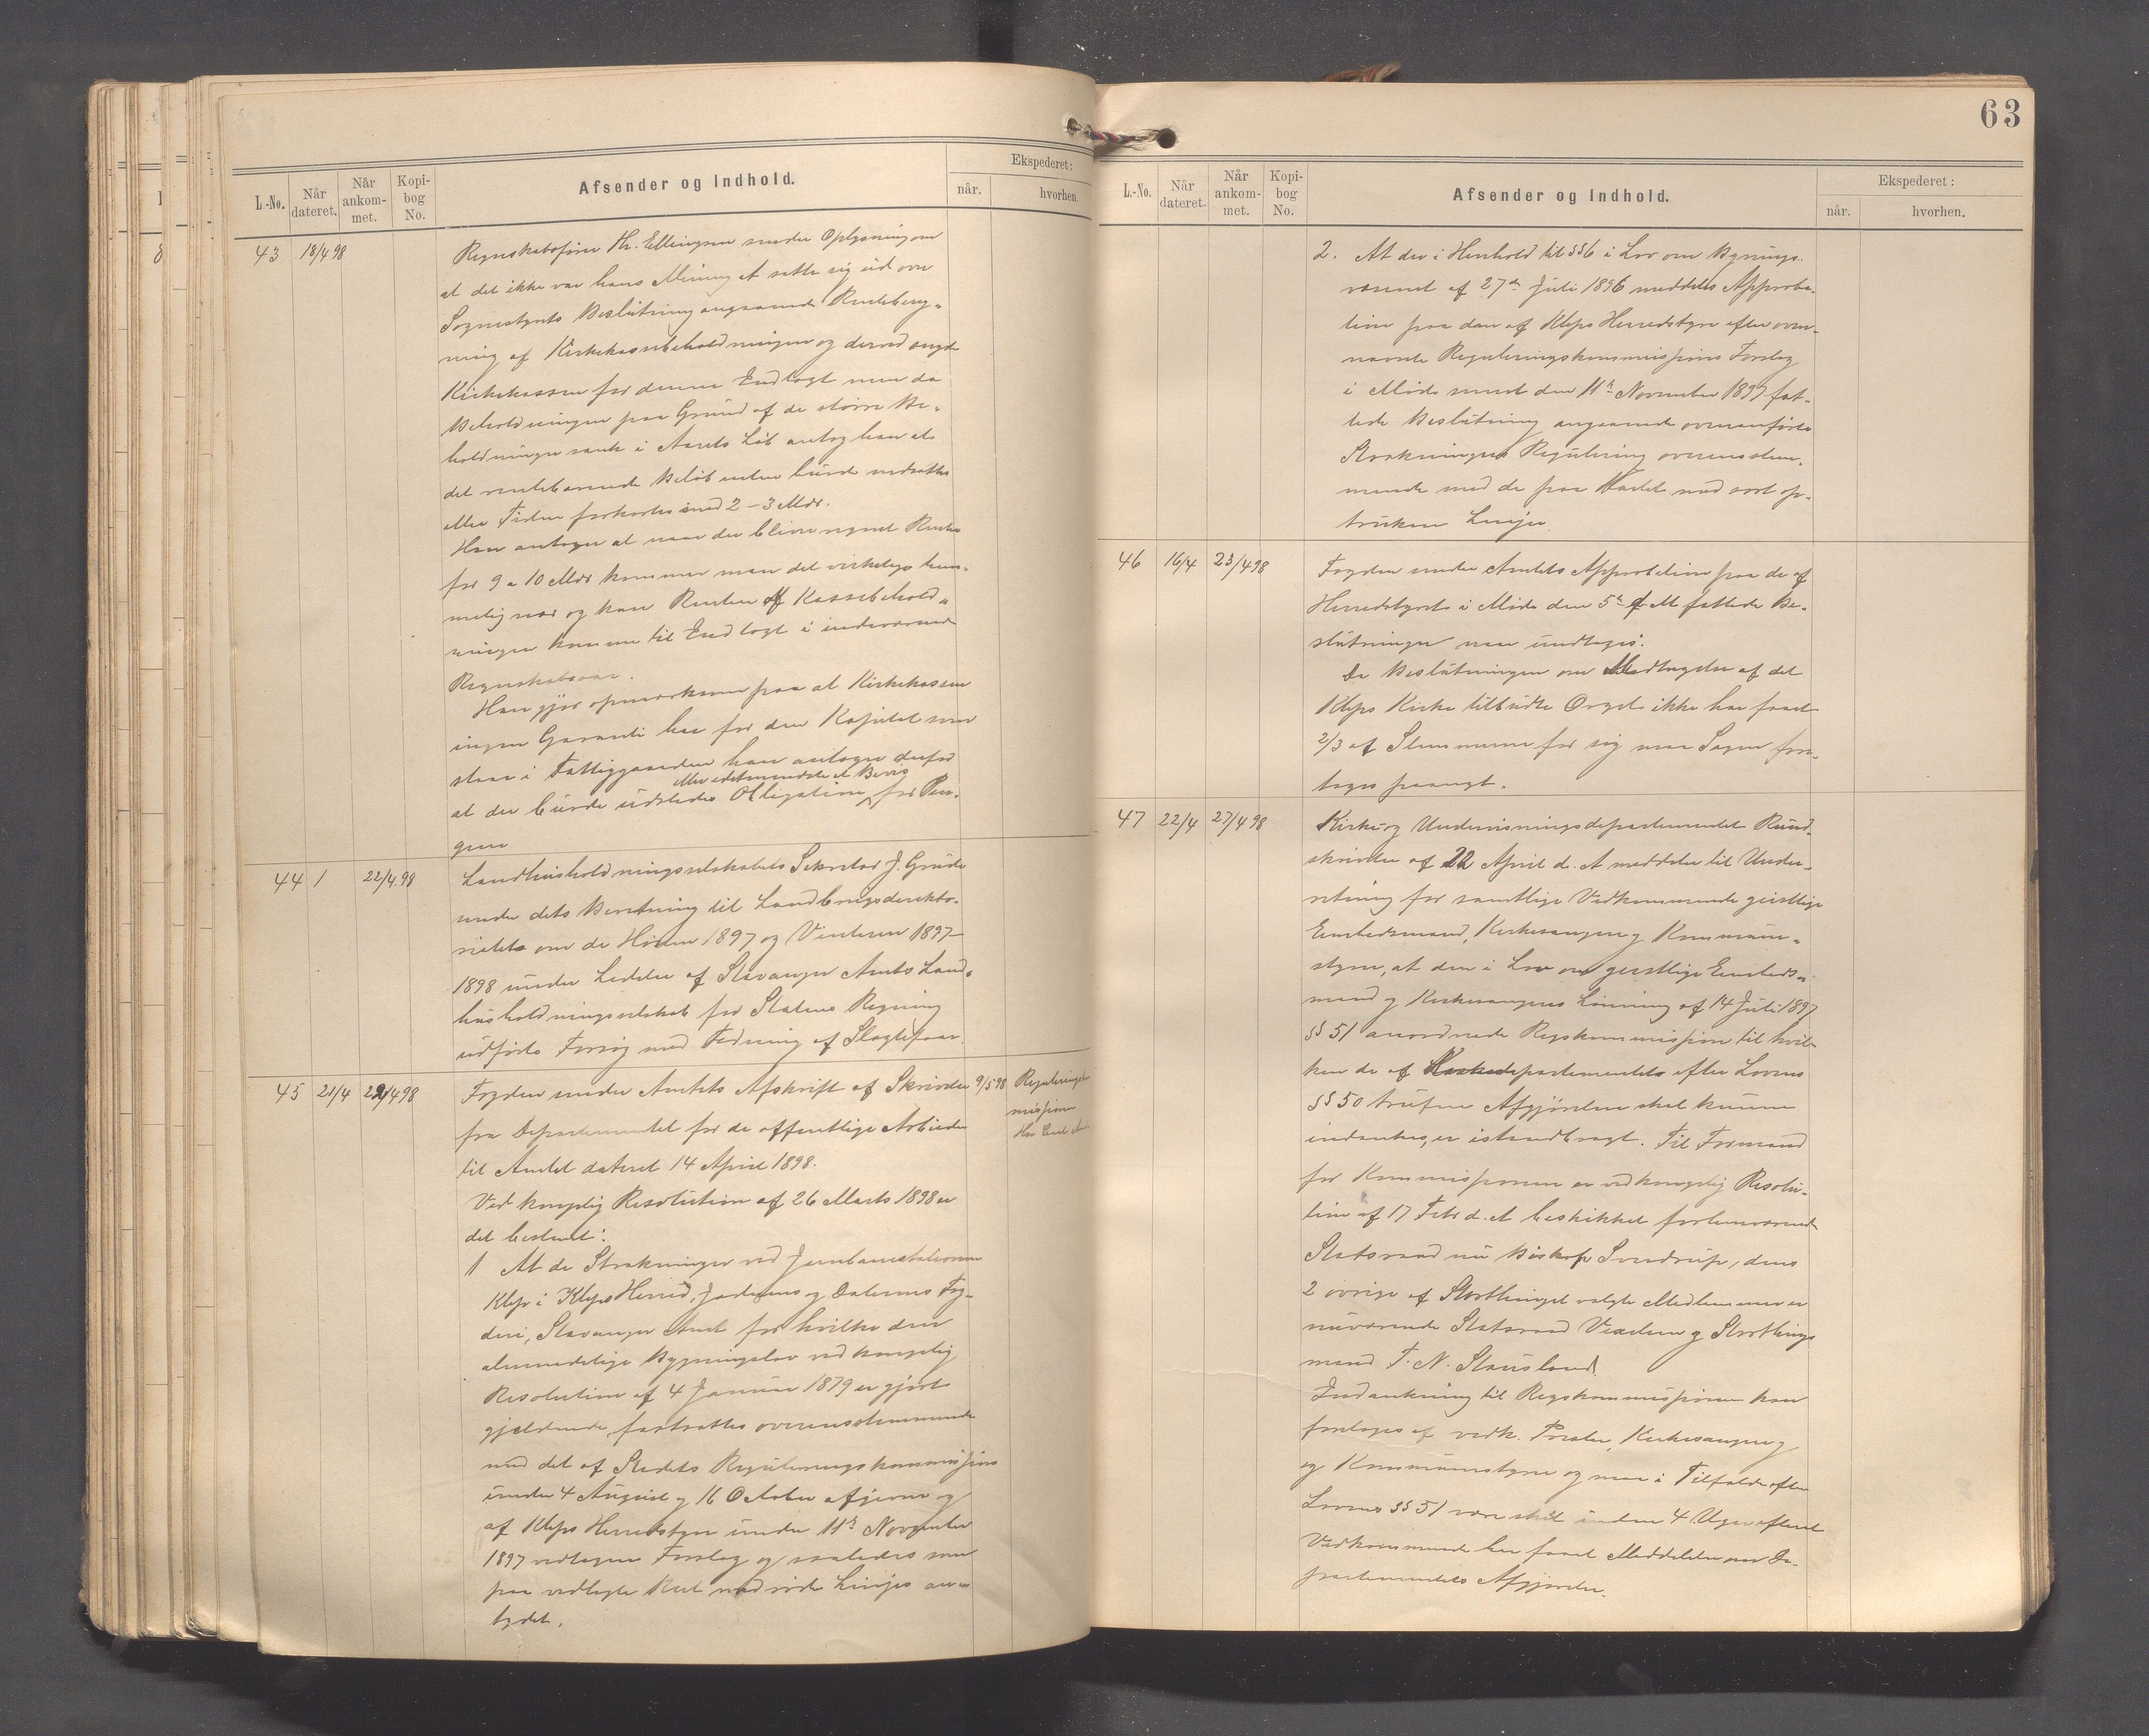 63
L.-No.
Når dateret.
Når ankom-met.
Kopi-bog No.
Afsender og Indhold.
Ekspederet:
når.
hvorhen.
43 18/4 98
Regnskabsfører Th. Ellingsen sender Oplysning om
at det ikke var hans Mening at sætte sig ud over
Sognestyrets Beslutning angaaende Rentebereg-
ning af Kirkekassebeholdningen og derved
Kirkekassen for denne Indtægt men da
Beholdningen paa Grund af de større Be-
holdninger i Aarets Løb antog han at
det rentebærende Beløb enten burde nedsættes
eller Tiden forkortes med 2-3 Mdr.
Han antager at naar der bliver regnet Renter
for 9 a 10 Mdr kommer man det virkelige tem-
melig nær og kan Renten af Kassebehold-
ningen komme til Indtægt i indeværende
Regnskabsaar.
Han gjør opmærksom paa at Kirkekassen
ingen Garanti har for den Kapital som
staar i Fattiggaarden han antager derfor
at der burde udstedes Obligation eller et Bevis for Pen-
gene
44 / 22/4.98
Landhusholdningsselskabets Sekretær J. Grude
sender dets Beretning til Landbrugsdirektø-
ratet om de Høsten 1897 og Vinteren 1897-
1898 under Ledelse af Stavanger Amts Land-
husholdningsselskab for Statens Regning
udførte Forsøg med Fedning af Slagtefaar.
45 21/4 22/4 98
Fogden sender Amtets Afskrift af Skrivelse 9/5 98
fra Departementet for de offentlige Arbeider
til Amtet dateret 14 April 1898.
Ved kongelig Resolution af 26 Marts 1898 er
det bestemt:
1 At de Strækninger ved Jernbanestationen
Klep i Kleps Herred, Jæderens og Dalernes Fog-
deri, Stavanger Amt for hvilke den
almindelige Bygningslov ved kongelig
Resolution af 4 Januar 1879 er gjort
gjældende, fastsættes overensstemmende
med det af Stedets Reguleringskommission
under 4 August og 16 October afgivne og
af Kleps Herredstyre under 11te November
1897 vedtagne Forslag og saaledes som
paa vedlagte Kart med røde Linjer an-
tydet.
L.-No.
Når dateret.
Når ankom-met.
Kopi-bog No.
Afsender og Indhold.
Ekspederet:
når.
hvorhen.
2. At der i Henhold til §§6 i Lov om Bygnings-
væsenet af 27de Juli 1896 meddeles Approba-
tion paa den af Kleps Herredstyre efter oven-
nævnte Reguleringskommissions Forslag
i Møde den 11te November 1897 fat-
tede Beslutning angaaende ovenanførte
Strækningers Regulering overensstem-
mende med de paa Kartet med sort op-
trukne Linjer.
46 16/4 23/4 98
Fogden sender Amtets Approbation paa de af
Herredstyret i Møde den 5te d. M fattede Be-
slutninger
Da Beslutningen om Modtagelse af det
Kleps Kirke tilbudte Orgel ikke har faaet
2/3 af Stemmerne for sig maa Sagen fore-
tages paanyt.
47 22/4 27/4 98
Kirke og Undervisningsdepartementet Rund-
skrivelse af 22 April d. A meddeler til Under-
retning for samtlige Vedkommende geistlige
Embedsmænd, Kirkesangere og Kommune-
styrer, at den i Lov om geistlige Embeds-
mænd og Kirkesangeres Lønning af 14 Juli 1897
§§ 51 anordnede Rigskommission til hvil-
ken de af Kirkedepartementet efter Lovens
§§ 50 trufne Afgjørelser skal kunne
indankes, er istandbragt. Til Formand
for Kommissionen er ved kongelig Resolu-
tion af 17 Febr d. A beskikket forhenværende
Statsraad nu Biskop Sverdrup, dens
2 øvrige af Storthinget valgte Medlemmer er
nuværende Statsraad og Storthings
mand T. N. Stausland
Indankning til Rigskommissionen kan
foretages af vedk. Prester, Kirkesangere
og Kommunestyre og maa i Tilfælde efter
Lovens §§ 51 være skeet inden 4 Uger efterat
Vedkommende har faaet Meddelelse om De-
partementets Afgjørelse.